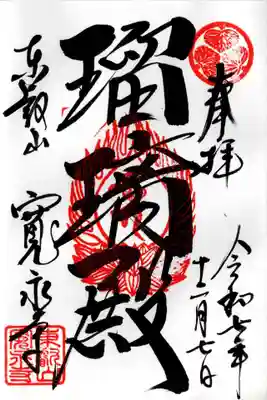 奉拝
令和七年
十二月七日
瑠璃殿
東叡山
寛永寺